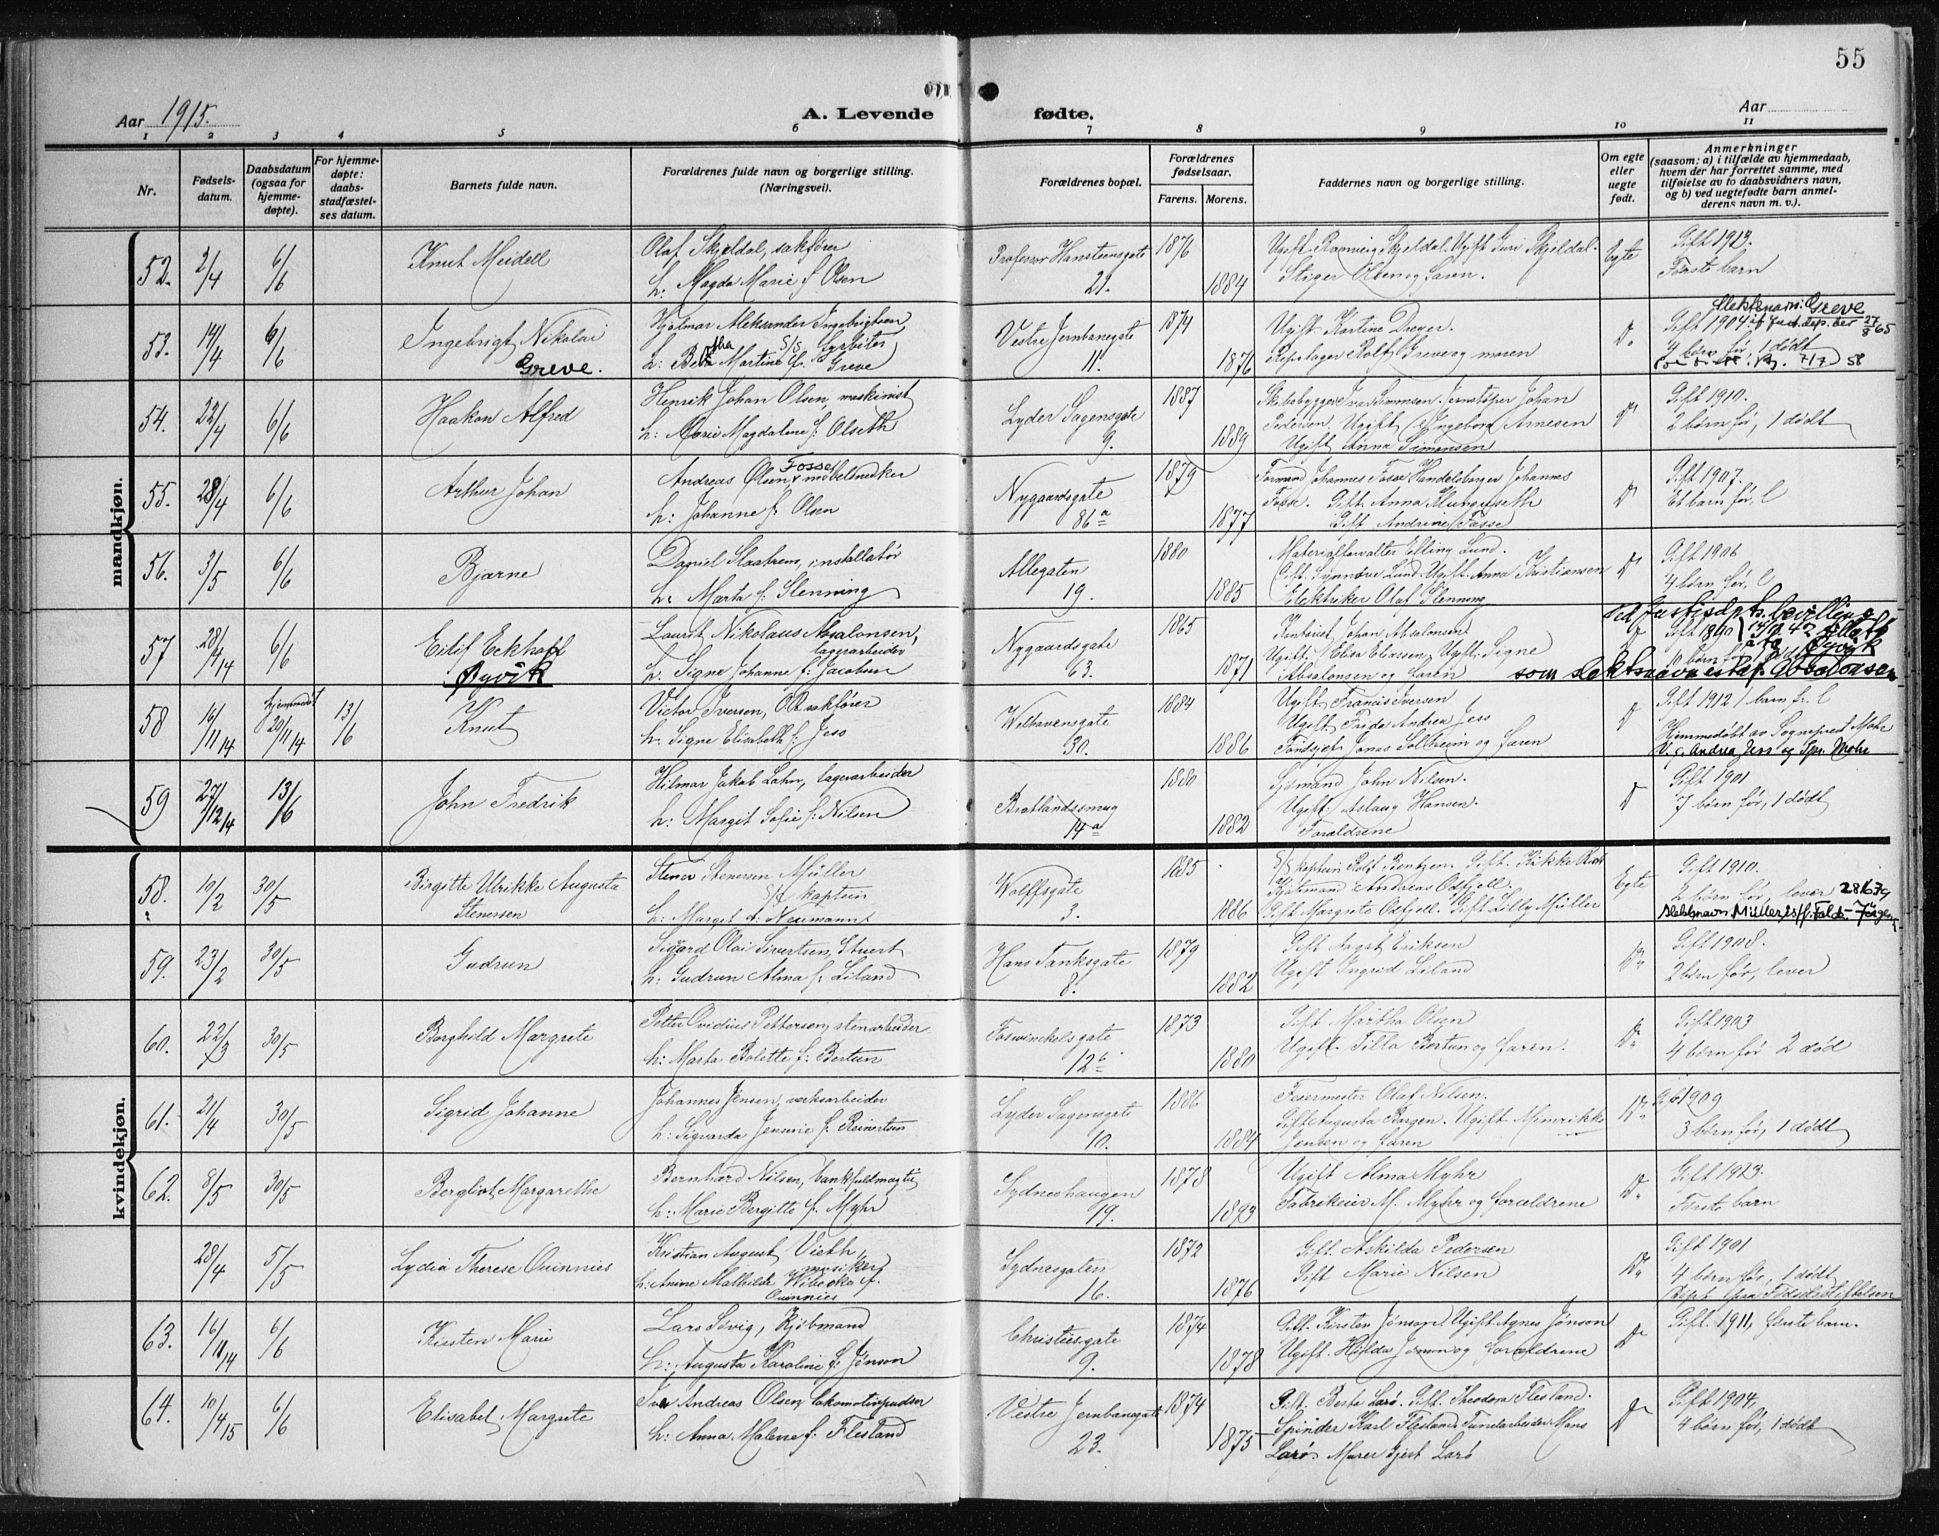 55
Aar 1915.
A. Levende fødte.
Aar
1 2 3 4 5 6 7 8 9 10 11
Nr.
Fødsels-
datum.
Daabsdatum
(ogsaa for
hjemme-
døpte).
For hjemme-
døpte:
daabs-
stadfæstel-
ses datum.
Barnets fulde navn.
Forældrenes fulde navn og borgerlige stilling.
(Næringsvei).
Forældrenes bopæl.
Forældrenes
fødselsaar.
Farens. Morens.
Faddernes navn og borgerlige stilling.
Om egte
eller
uegte
født.
Anmerkninger
(saasom: a) i tilfælde av hjemmedaab,
hvem der har forrettet samme, med
tilføielse av to daabsvidners navn,
og b) ved uegtefødte barn anmel-
derens navn m. v.).
mandkjøn.
52. 2/4 6/6 Knut Meidell
Olaf Skjeldal, sakfører
h. Magda Marie f. Olsen
Professor Hansteensgate
21.
1876 1884
Ugift Ranveig Skjeldal. Ugift Guri Skjeldal.
Stiger Olsen og faren.
Egte
Gift 1913.
Første barn
53. 14/4 6/6 Ingebrigt Nikolai
Greve.
Hjalmar Aleksander Ingebrigtsen
h. Martine f. Greve
Vestre Jernbanegate
11.
1874 1876
Ugift Kartine Dreyer.
Repslager Rolf Greve og moren
Slektsnavn: Greve
Gift 1904
4 børn før, 1 dødt
54. 22/4 6/6 Haakon Alfred
Henrik Johan Olsen, maskinist
h: Marie Magdalene f. Olseth
Lyder Sagensgate
9.
1887 1889
Skibsbygger Ivar Simonsen. Jernstøper Johan
Pedersen. Ugift Ingeborg Arnesen
Ugift Anna Simonsen
Gift 1910.
2 børn før, 1 dødt
55. 28/4 6/6 Arthur Johan
Andreas Olsen Fosse, møbelsnekker
h: Johanne f. Olsen
Nygaardsgate
86a
1879 1877
Formand Johannes Fosse Handelsborger Johannes
Fosse. Gift Anna
Gift Andrine Fosse
Gift 1907.
Et barn før, l
56. 3/5 6/6 Bjarne
Daniel installatør
h. Marta f. Slenning
Allegaten
19.
1880 1885
Materialforvalter Elling Lund.
Gift Synnøve Lund Ugift Anna Kristiansen
Elektriker Olaf Slenning
Gift 1906
4 børn før, l
57 28/4 14 6/6 Eilif Eckhoff
Øyvik
Laurits Nikolaus Absalonsen,
lagerarbeider
h. Signe Johanne f. Jacobsen
Nygaardsgate
63.
1865 1871
Kontorist Johan Absalonsen
Ugift Elisa Eliassen Ugift Signe
Absalonsen og faren
ved Justisdpts bevilling
Gift 1890
Øyvik
som slektsnavn istf. Absalonsen
58 16/11 14 hjemmedøpt 20/11 14 13/6 Knut
Victor Iversen, O.R.sakfører
h. Signe Elisabeth f. Jess
Welhavensgate
30.
1884 1886
Ugift Francis Iversen
Ugift Frida Andrea Jess
Jonas Solheim og faren
Gift 1912 1 barn f. l
Hjemmedøbt av Sogneprest Mohr
V. Andrea Jess og Spr. Mohr
59 27/12 14 13/6 John Fredrik
Hilmar Jakob Lahn, lagerarbeider
h: Margit Sofie f. Nilsen
Bratlandssmug
14a
1880 1882
Sjømand John Nilsen.
Ugift Aslaug Hansen.
Forældrene
Gift 1901
7 børn før, 1 dødt
kvindekjøn.
58. 10/2 30/5 Birgitte Ulrikke Augusta
Stenersen
Stener Stenersen Müller
kaptein
h. Margit f. Neumann
Wolffsgate
3.
1885 1886
kaptein Rolf Berntzen. Gift
Andreas Odfjell.
Gift Margrete Odfjell. Gift Lilly Müller
Egte
Gift 1910.
2 børn før, lever
Slektsnavn Müller
59. 23/2 30/5 Gudrun
Sigurd Olai Sivertsen, Stuert
h. Gudrun Alma f. Liland
Hans Tanksgate
8.
1879 1882
Gift Aagot Eriksen
Ugift Ingrid Liland
Gift 1908.
2 børn før, lever
60. 22/3 30/5 Borghild Margrete
Petter Ovidius Pettersen, stenarbeider
h: Marta Bolette f. Bertun
Foswinckelsgate
12b
1873 1880
Gift Martha Olsen
Ugift Tilla Bertun og faren.
Gift 1903
4 børn før 2 død
61. 21/4 30/5 Sigrid Johanne
Johannes Jensen, verksarbeider
h: Sigvarda Jensine f. Reinertsen
Lyder Sagensgate
10.
1886 1884
Feiermester Olaf Nilsen.
Gift Augusta Borgen. Ugift Minrikke
Jensen og faren
1909
3 børn før, 1 dødt
62. 8/5 30/5 Bergliot Margarethe
Bernhard Nilsen, bankfuldmægtig
h: Marie Bergitte f. Myhr
Sydneshaugen
19.
1878 1893
Ugift Alma Myhr
Fabrikeier M. Myhr og forældrene
Gift 1913.
Første barn
28/4 5/5 Lydia Therese Quinnies
Kristian August Vieth,
musiker
h. Anine Mathilde Wibecke f.
Quinnies
Sydnesgaten
16.
1872 1876
Gift. Askilda Pedersen
Gift Marie Nilsen
Gift 1901
4 børn før, 1 dødt
Døpt paa Fødselsstiftelsen
63. 16/11 14 6/6 Kirsten Marie
Lars Sevig, Kjøbmand
h. Augusta Karoline f. Jønson
Christiesgate
9.
1874 1878
Gift. Kirsten Jønson Ugift Agnes Jønson
Ugift. Hilda Jønson og forældrene
Gift. 1911, første barn.
64. 10/4 15 6/6 Elisabet Margrete
Andreas Olsen lokomotivpudser
h: Anna Malene f. Flesland
Vestre Jernbanegate
23.
1874 1875
Gift. Berta Larø. Gift. Theodora Flesland.
Spinder Karl Flesland, Tundarbeider Mons
Larø. Murer Gjert Larø
Gift 1904,
4 børn før, 1 dødt